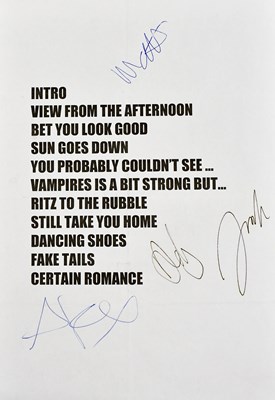 Matt
INTRO
VIEW FROM THE AFTERNOON
BET YOU LOOK GOOD
SUN GOES DOWN
YOU PROBABLY COULDN'T SEE ...
VAMPIRES IS A BIT STRONG BUT...
RITZ TO THE RUBBLE
STILL TAKE YOU HOME
DANCING SHOES
FAKE TAILS
CERTAIN ROMANCE
Alex